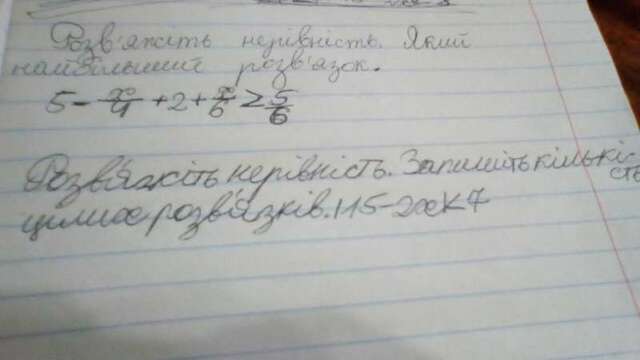 Розв'яжіть нерівність. Який
найбільший розв'язок.
5 - x/4 + 2 + x/6 ≥ 5/6
Розв'яжіть нерівність. Запишіть кількість
цілих розв'язків. |15-2x|<7